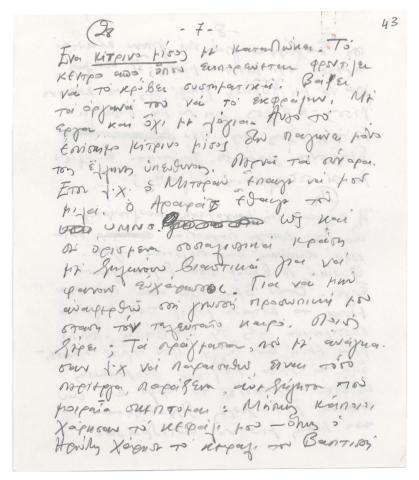 28 - 7 - 43
Ένα κίτρινο μίσος με καταδιώκει. Τό
κέντρο από όπου εκπορεύεται φροντίζει
νά το κρύβει συστηματικά. Βάζει
τά όργανά του νά το εκφράζουν. Μέ
έργα και όχι με λόγια. Αυτό το
επίσημο κίτρινο μίσος δεν παγώνει μόνο
τους έλληνες υπεύθυνους. Περνά τα σύνορα.
Έτσι π.χ. ο Μιτεράν έπαψε νά μου
μιλά. Ο Αραφάτ έπαψε τον
ύμνο. Ως και
σε ορισμένα σοσιαλιστικά κράτη
με ξηλώνουν βιαστικά για να
φανούν ευχάριστοι. Για νά μην
αναφερθώ στη γνωστή προσωπική μου
στάση τον τελευταίο καιρό. Ποιος
ξέρει; Τά πράγματα, πού μ' ανάγκα-
σαν π.χ. νά παραιτηθώ, είναι τόσο
περίεργα παράξενα, ανεξήγητα που
μοιραία σκέπτομαι: Μήπως κάποιοι
χάρισαν το κεφάλι μου — όπως ο
Ηρώδης χάρισε το κεφάλι του Βαπτιστή